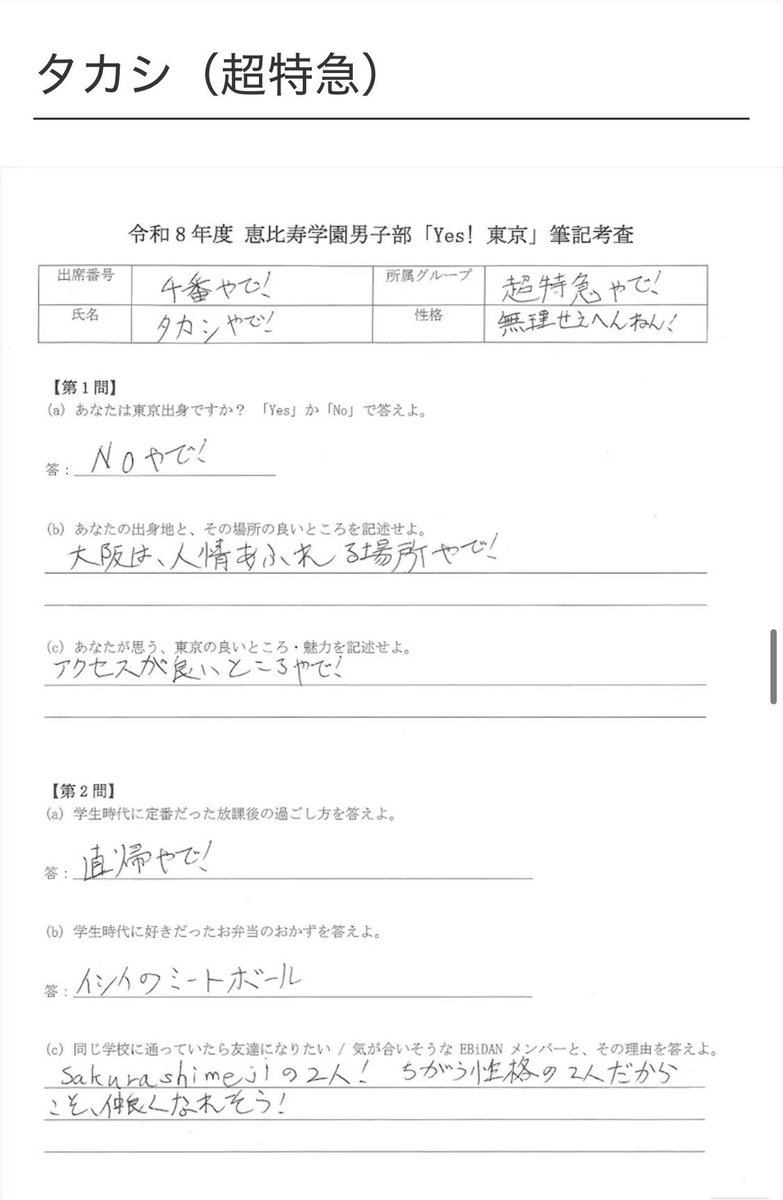 タカシ（超特急）
令和8年度 恵比寿学園男子部「Yes! 東京」筆記考査
出席番号 4番やで! 所属グループ 超特急やで!
氏名 タカシやで! 性格 無理せえへんねん!
【第1問】
(a) あなたは東京出身ですか? 「Yes」か「No」で答えよ。
答: Noやで!
(b) あなたの出身地と、その場所の良いところを記述せよ。
大阪は、人情あふれる場所やで!
(c) あなたが思う、東京の良いところ・魅力を記述せよ。
アクセスが良いところやで!
【第2問】
(a) 学生時代に定番だった放課後の過ごし方を答えよ。
答: 直帰やで!
(b) 学生時代に好きだったお弁当のおかずを答えよ。
答: イシイのミートボール
(c) 同じ学校に通っていたら友達になりたい / 気が合いそうな EBiDAN メンバーと、その理由を答えよ。
Sakurashimejiの2人! ちがう性格の2人だから
こそ、仲良くなれそう!